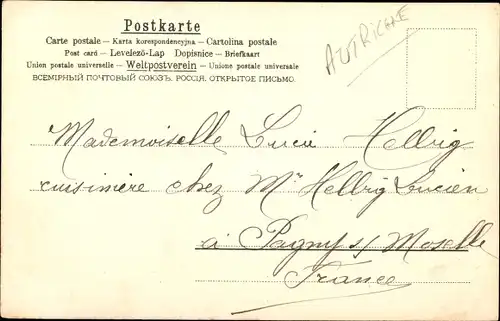 Postkarte
Carte postale – Karta korespondencyjna – Cartolina postale
Post card – Levelező-Lap Dopisnice – Briefkaart
Union postale universelle – Weltpostverein – Unione postale universale
ВСЕМІРНЫЙ ПОЧТОВЫЙ СОЮЗЪ. РОССІЯ. ОТКРЫТОЕ ПИСЬМО.
AUTRICHE
Mademoiselle Lucie Hellrig
cuisinière chez Mr Hellrig Lucien
à Pagny s/ Moselle
France